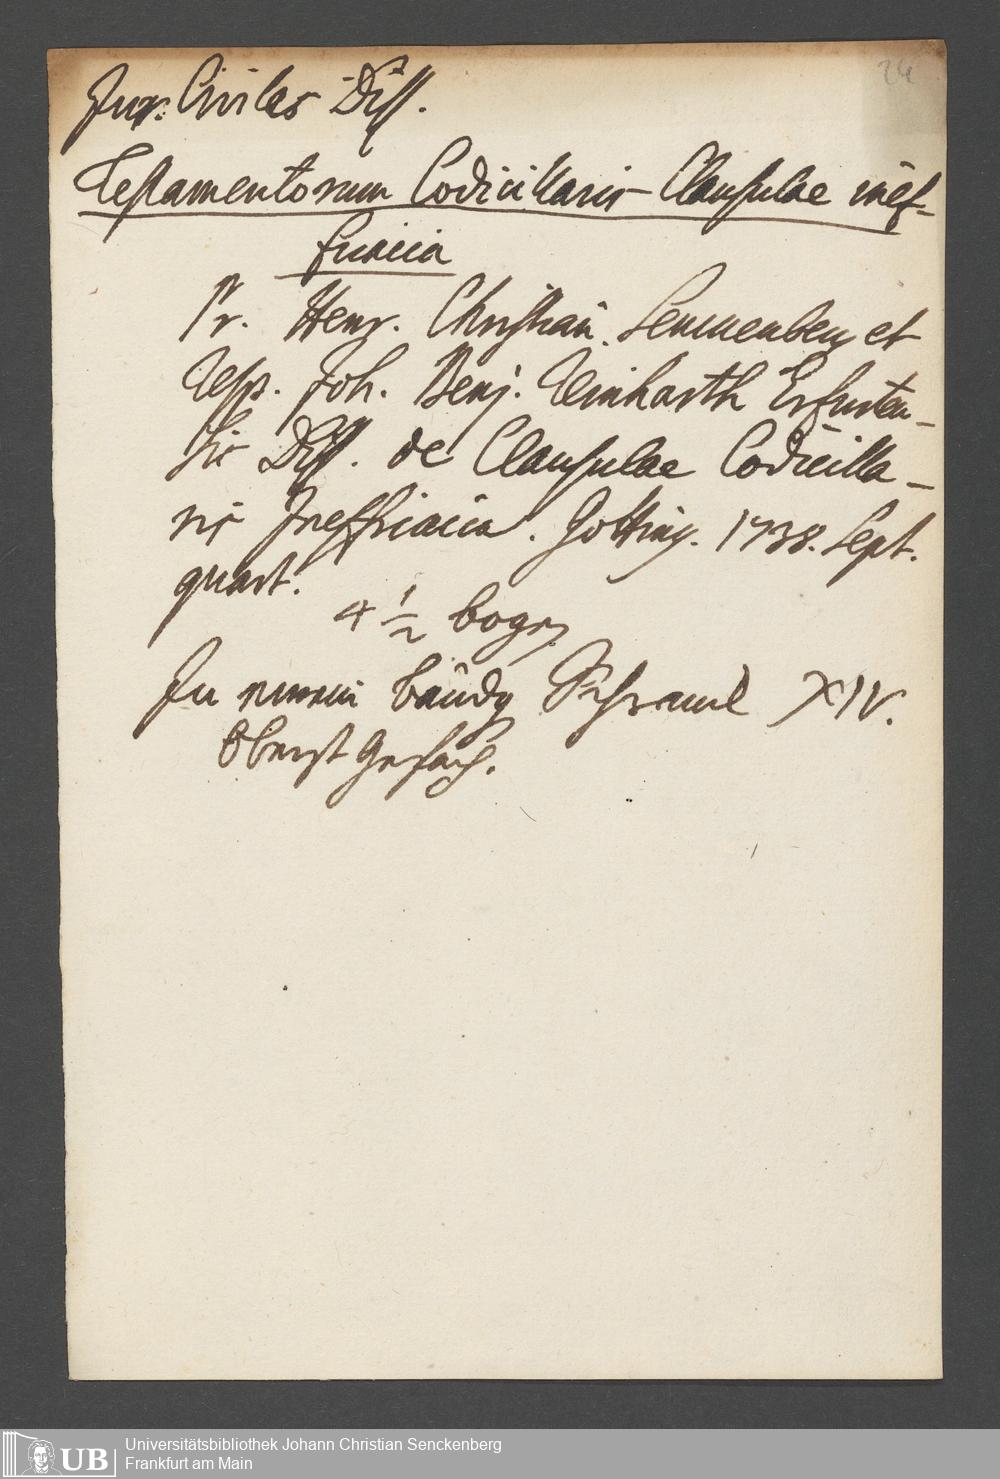 24
Jur. Civiles Diss.
Testamentorum Codicillaris Clausulae inef-
ficacia
Pr. Henr. Christian. Senckenberg et
Resp. Joh. Benj. Reinharth Erfurten-
sis Diss. de Clausulae Codicilla-
ris Inefficacia. Gotting. 1738. Sept.
quart.
4 1/2 bogen
In einem bändgen Schranck XIV.
Oberst Gefach.
UB
Universitätsbibliothek Johann Christian Senckenberg
Frankfurt am Main